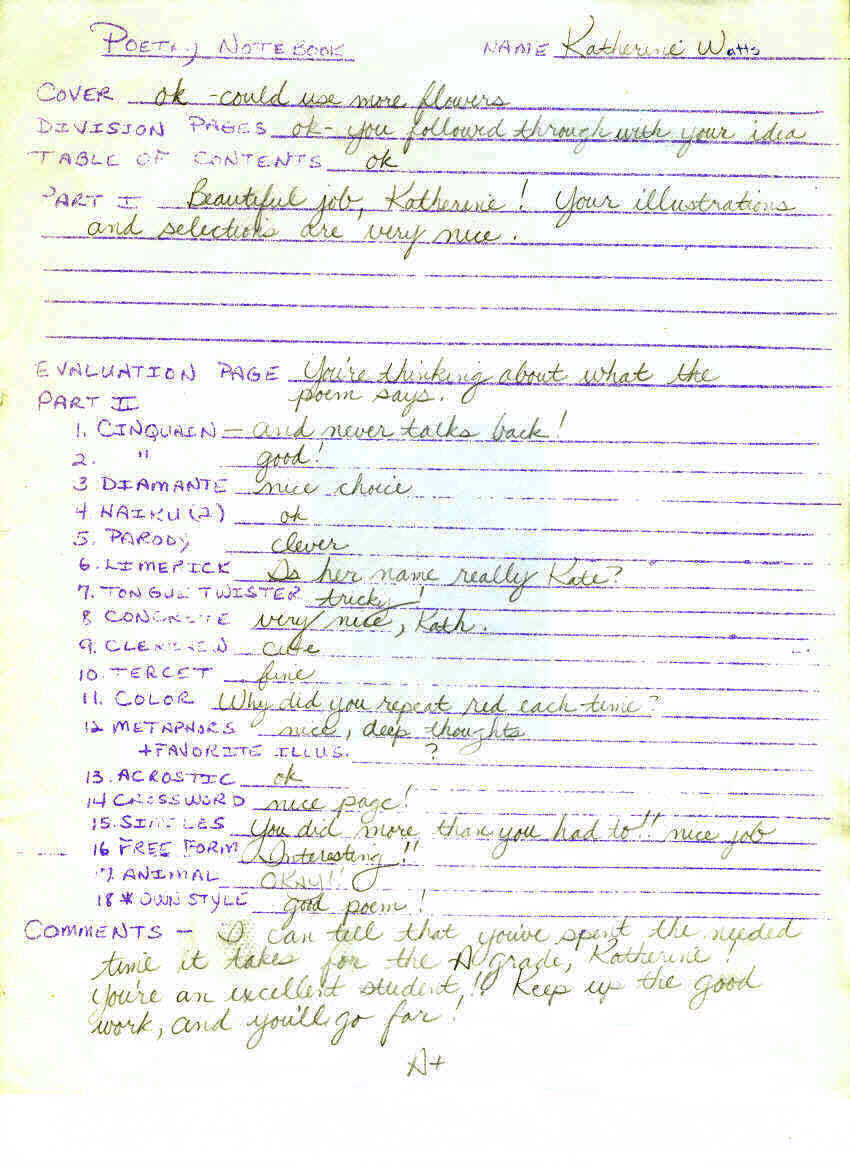 POETRY NOTEBOOK NAME Katherine Watts
COVER ok - could use more flowers
DIVISION PAGES ok - you followed through with your idea
TABLE OF CONTENTS ok
PART I Beautiful job, Katherine! Your illustrations
and selections are very nice.
EVALUATION PAGE You're thinking about what the
poem says.
PART II
1. CINQUAIN - and never talks back!
2. " good!
3 DIAMANTE nice choice
4 HAIKU (2) ok
5. PARODY clever
6. LIMERICK Is her name really Kate?
7. TONGUE TWISTER tricky!
8 CONCRETE very nice, Kath.
9. CLERIHEW cute
10. TERCET fine
11. COLOR Why did you repeat red each time?
12 METAPHORS nice, deep thoughts
+ FAVORITE ILLUS. ?
13. ACROSTIC ok
14 CROSSWORD nice page!
15. SIMILES You did more than you had to!! nice job
16 FREE FORM Interesting!!
17 ANIMAL OKAY!!
18 * OWN STYLE good poem!
COMMENTS - I can tell that you've spent the needed
time it takes for the A grade, Katherine!
You're an excellent student!! Keep up the good
work, and you'll go far!
A+